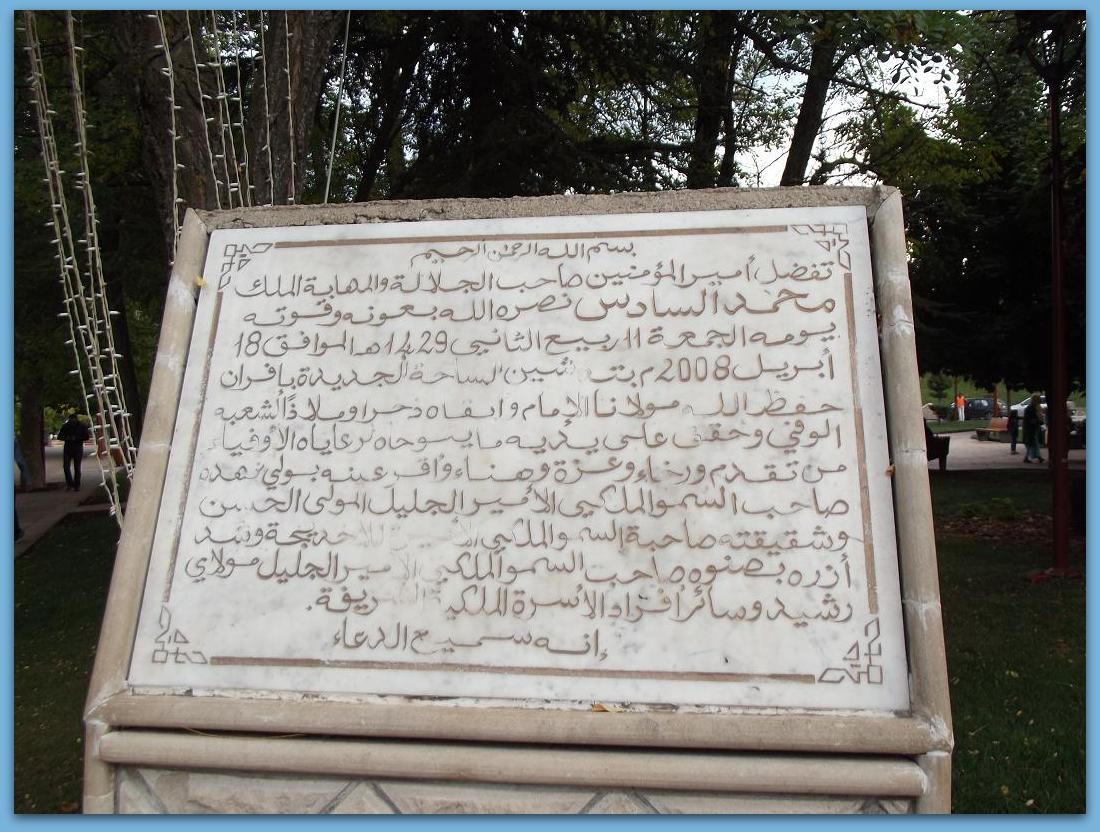 بسم الله الرحمن الرحيم
تفضل أمير المؤمنين صاحب الجلالة والمهابة الملك
محمد السادس نصره الله بعونه وقوته
يومه الجمعة 11 ربيع الثاني 1429هـ الموافق 18
أبريل 2008م بتدشين الساحة الجديدة بإفران
حفظ الله مولانا الإمام وابقاه ذخرا وملاذا لشعبه
الوفي وحقق على يديه ما يسوحاه لرعاياه الأوفياء
من تقدم ورخاء وعزة وهناء وأقر عينه بولي عهده
صاحب السمو الملكي الأمير الجليل المولى الحسن
وشقيقته صاحبة السمو الملكي الأميرة للا خديجة وشد
أزره بصنوه صاحب السمو الملكي الأمير الجليل مولاي
رشيد وسائر أفراد الأسرة الملكية الشريفة.
إنه سميع الدعاء